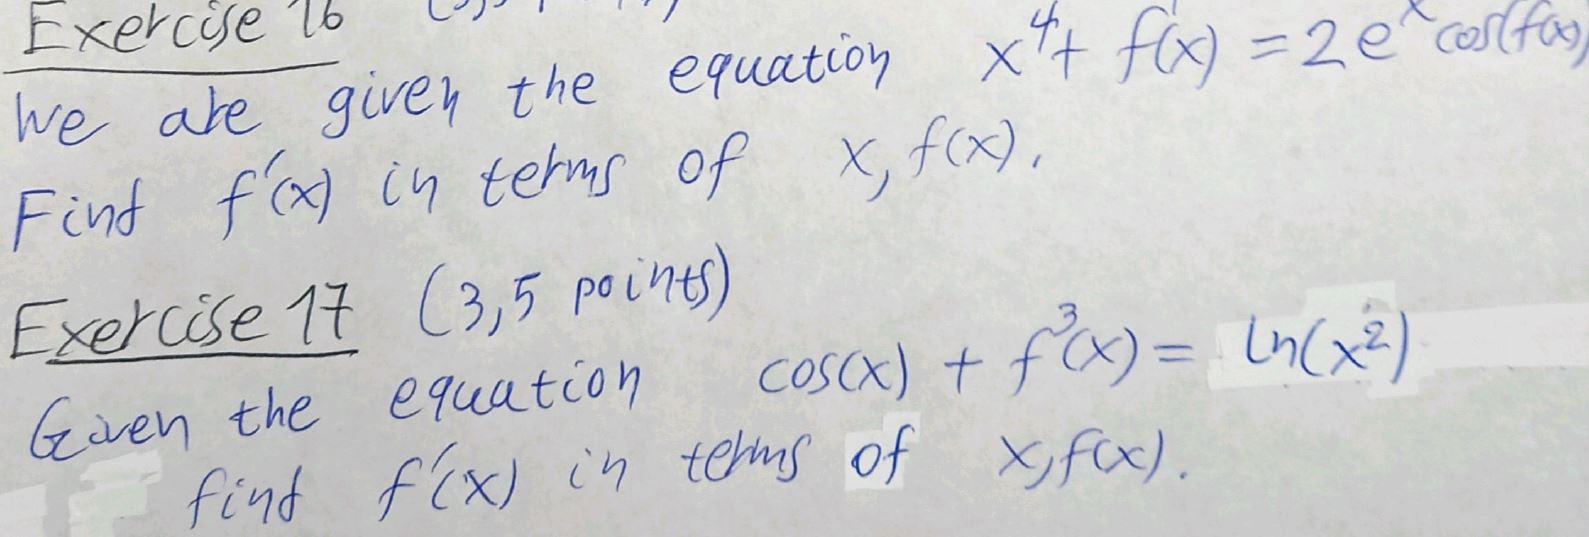 Exercise 16
We are given the equation x⁴ + f(x) = 2e^x cos(f(x))
Find f'(x) in terms of x, f(x).
Exercise 17 (3,5 points)
Given the equation cos(x) + f³(x) = ln(x²)
find f'(x) in terms of x, f(x).